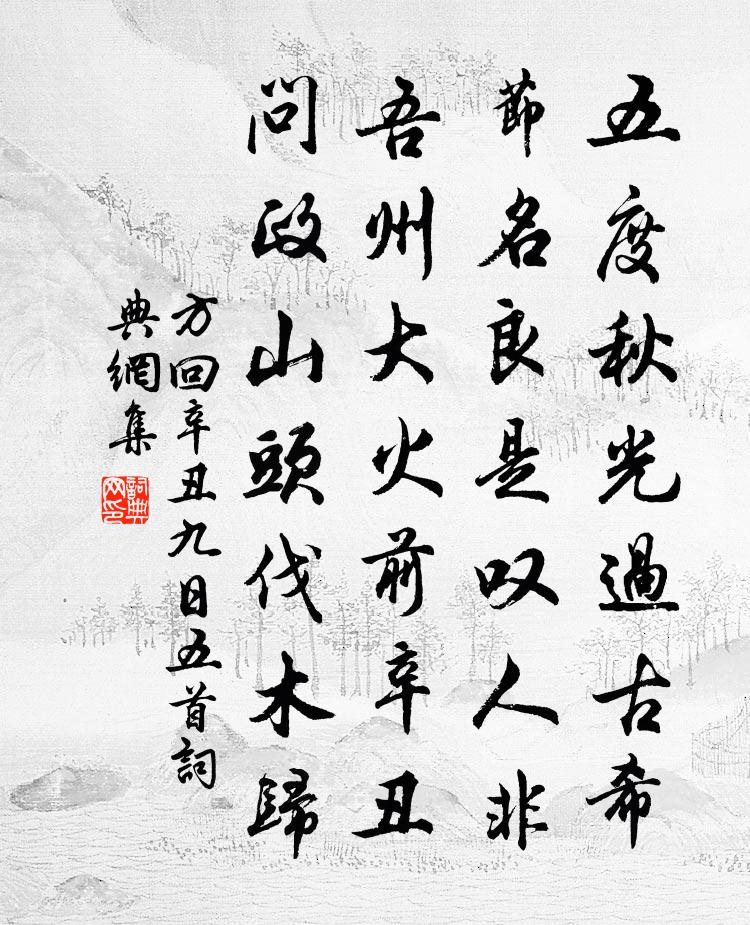 五度秋光過古希
節名良是叹人非
吾州大火前辛丑
問政山頭伐木歸
方回辛丑九日五首詞
典網集
詞典网印